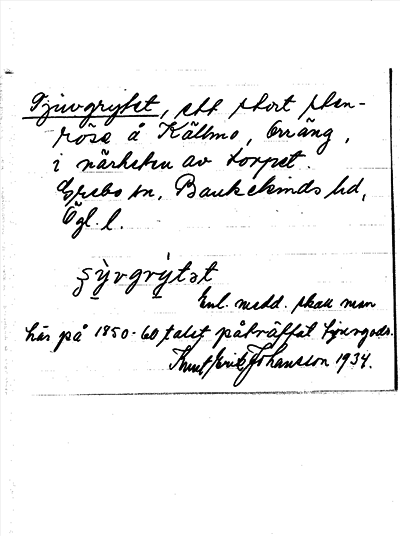 Tjuvgrytet, ett stort sten-
röse å Källmo, Orräng,
i närheten av torpet.
Grebo sn, Bankekinds hd,
Ögl. l.
ʂỳvgrỳtət
Enl. medd. skall man
här på 1850-60 talet påträffat tjuvgods.
Knut Erik Johansson 1934.